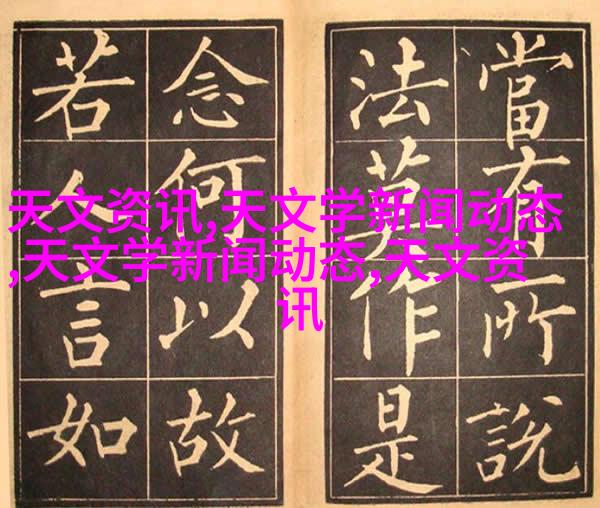 當有所說
法莫作是
念何以故
若人言如
天文资讯,天文学新闻动态
,天文学新闻动态,天文资
讯